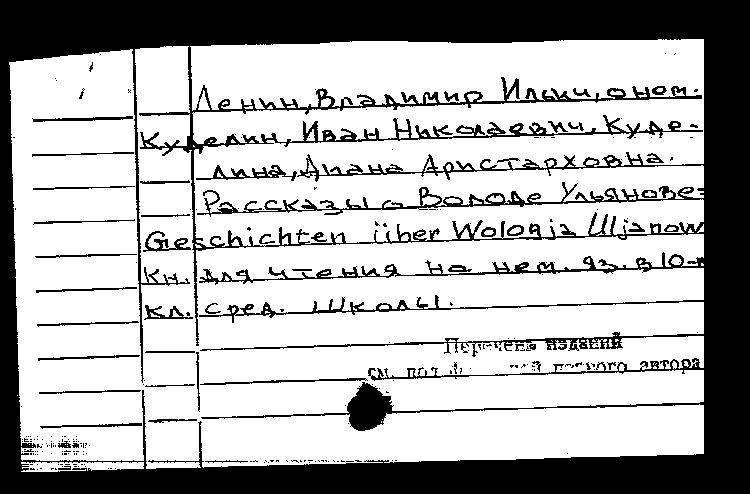 Ленин, Владимир Ильич, о нем.
Куделин, Иван Николаевич, Куде-
лина, Диана Аристарховна.
Рассказы о Володе Ульянове=
Geschichten über Wolodja Uljanow
Кн. для чтения на нем. яз. в 10-м
кл. сред. школы.
Перечень изданий
см. под первого автора